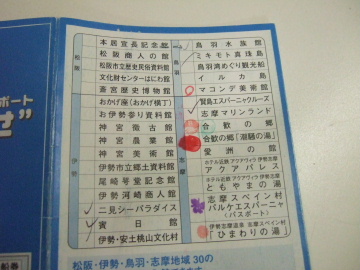 ポート
せ"
松阪
本居宣長記念館
松阪商人の館
松阪市立歴史民俗資料館
文化財センターはにわ館
斎宮歴史博物館
伊勢
おかげ座(おかげ横丁)
お伊勢参り資料館
神宮徴古館
神宮農業館
神宮美術館
伊勢市立郷土資料館
尾崎咢堂記念館
伊勢河崎商人館
二見シーパラダイス
賓日館
伊勢・安土桃山文化村
鳥羽
鳥羽水族館
ミキモト真珠島
鳥羽湾めぐり観光船
イルカ島
マコンデ美術館
志摩
賢島エスパーニャクルーズ
志摩マリンランド
合歓の郷
合歓の郷「潮騒の湯」
愛洲の館
ホテル近鉄 アクアヴィラ 伊勢志摩
アクアパレス
ホテル近鉄 アクアヴィラ 伊勢志摩
ともやまの湯
志摩スペイン村
パルケエスパーニャ
(パスポート)
伊勢志摩温泉 志摩スペイン村
「ひまわりの湯」
松阪・伊勢・鳥羽・志摩地域30の